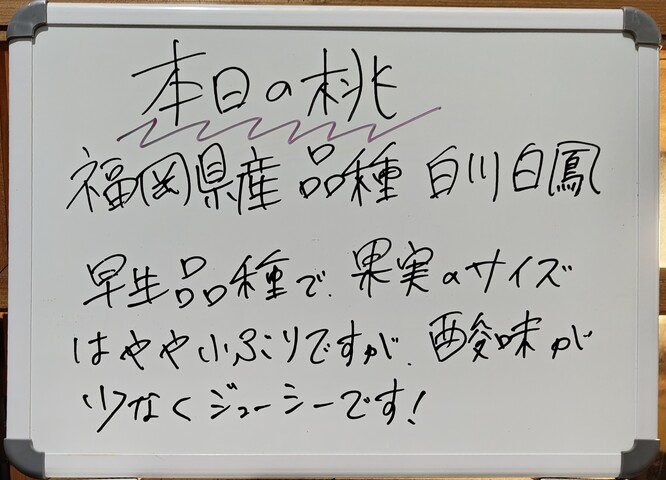 本日の桃
福岡県産 品種 白川白鳳
早生品種で、果実のサイズ
はやや小ぶりですが、酸味が
少なくジューシーです!